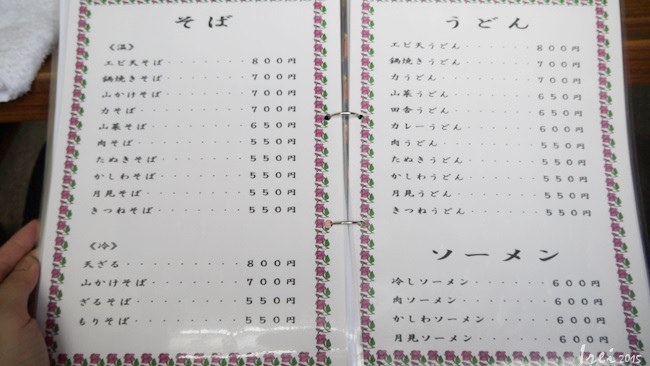 そば
《温》
エビ天そば・・・・・・・800円
鍋焼きそば・・・・・・・700円
山かけそば・・・・・・・700円
力そば・・・・・・・・・700円
山菜そば・・・・・・・・650円
肉そば・・・・・・・・・550円
たぬきそば・・・・・・・550円
かしわそば・・・・・・・550円
月見そば・・・・・・・・550円
きつねそば・・・・・・・550円
《冷》
天ざる・・・・・・・・・800円
山かけそば・・・・・・・700円
ざるそば・・・・・・・・550円
もりそば・・・・・・・・550円
うどん
エビ天うどん・・・・・・800円
鍋焼うどん・・・・・・・700円
力うどん・・・・・・・・700円
山菜うどん・・・・・・・650円
田舎うどん・・・・・・・650円
カレーうどん・・・・・・600円
肉うどん・・・・・・・・550円
たぬきうどん・・・・・・550円
かしわうどん・・・・・・550円
月見うどん・・・・・・・550円
きつねうどん・・・・・・550円
ソーメン
冷しソーメン・・・・・・600円
肉ソーメン・・・・・・・600円
かしわソーメン・・・・・600円
月見ソーメン・・・・・・600円
Irei 2015